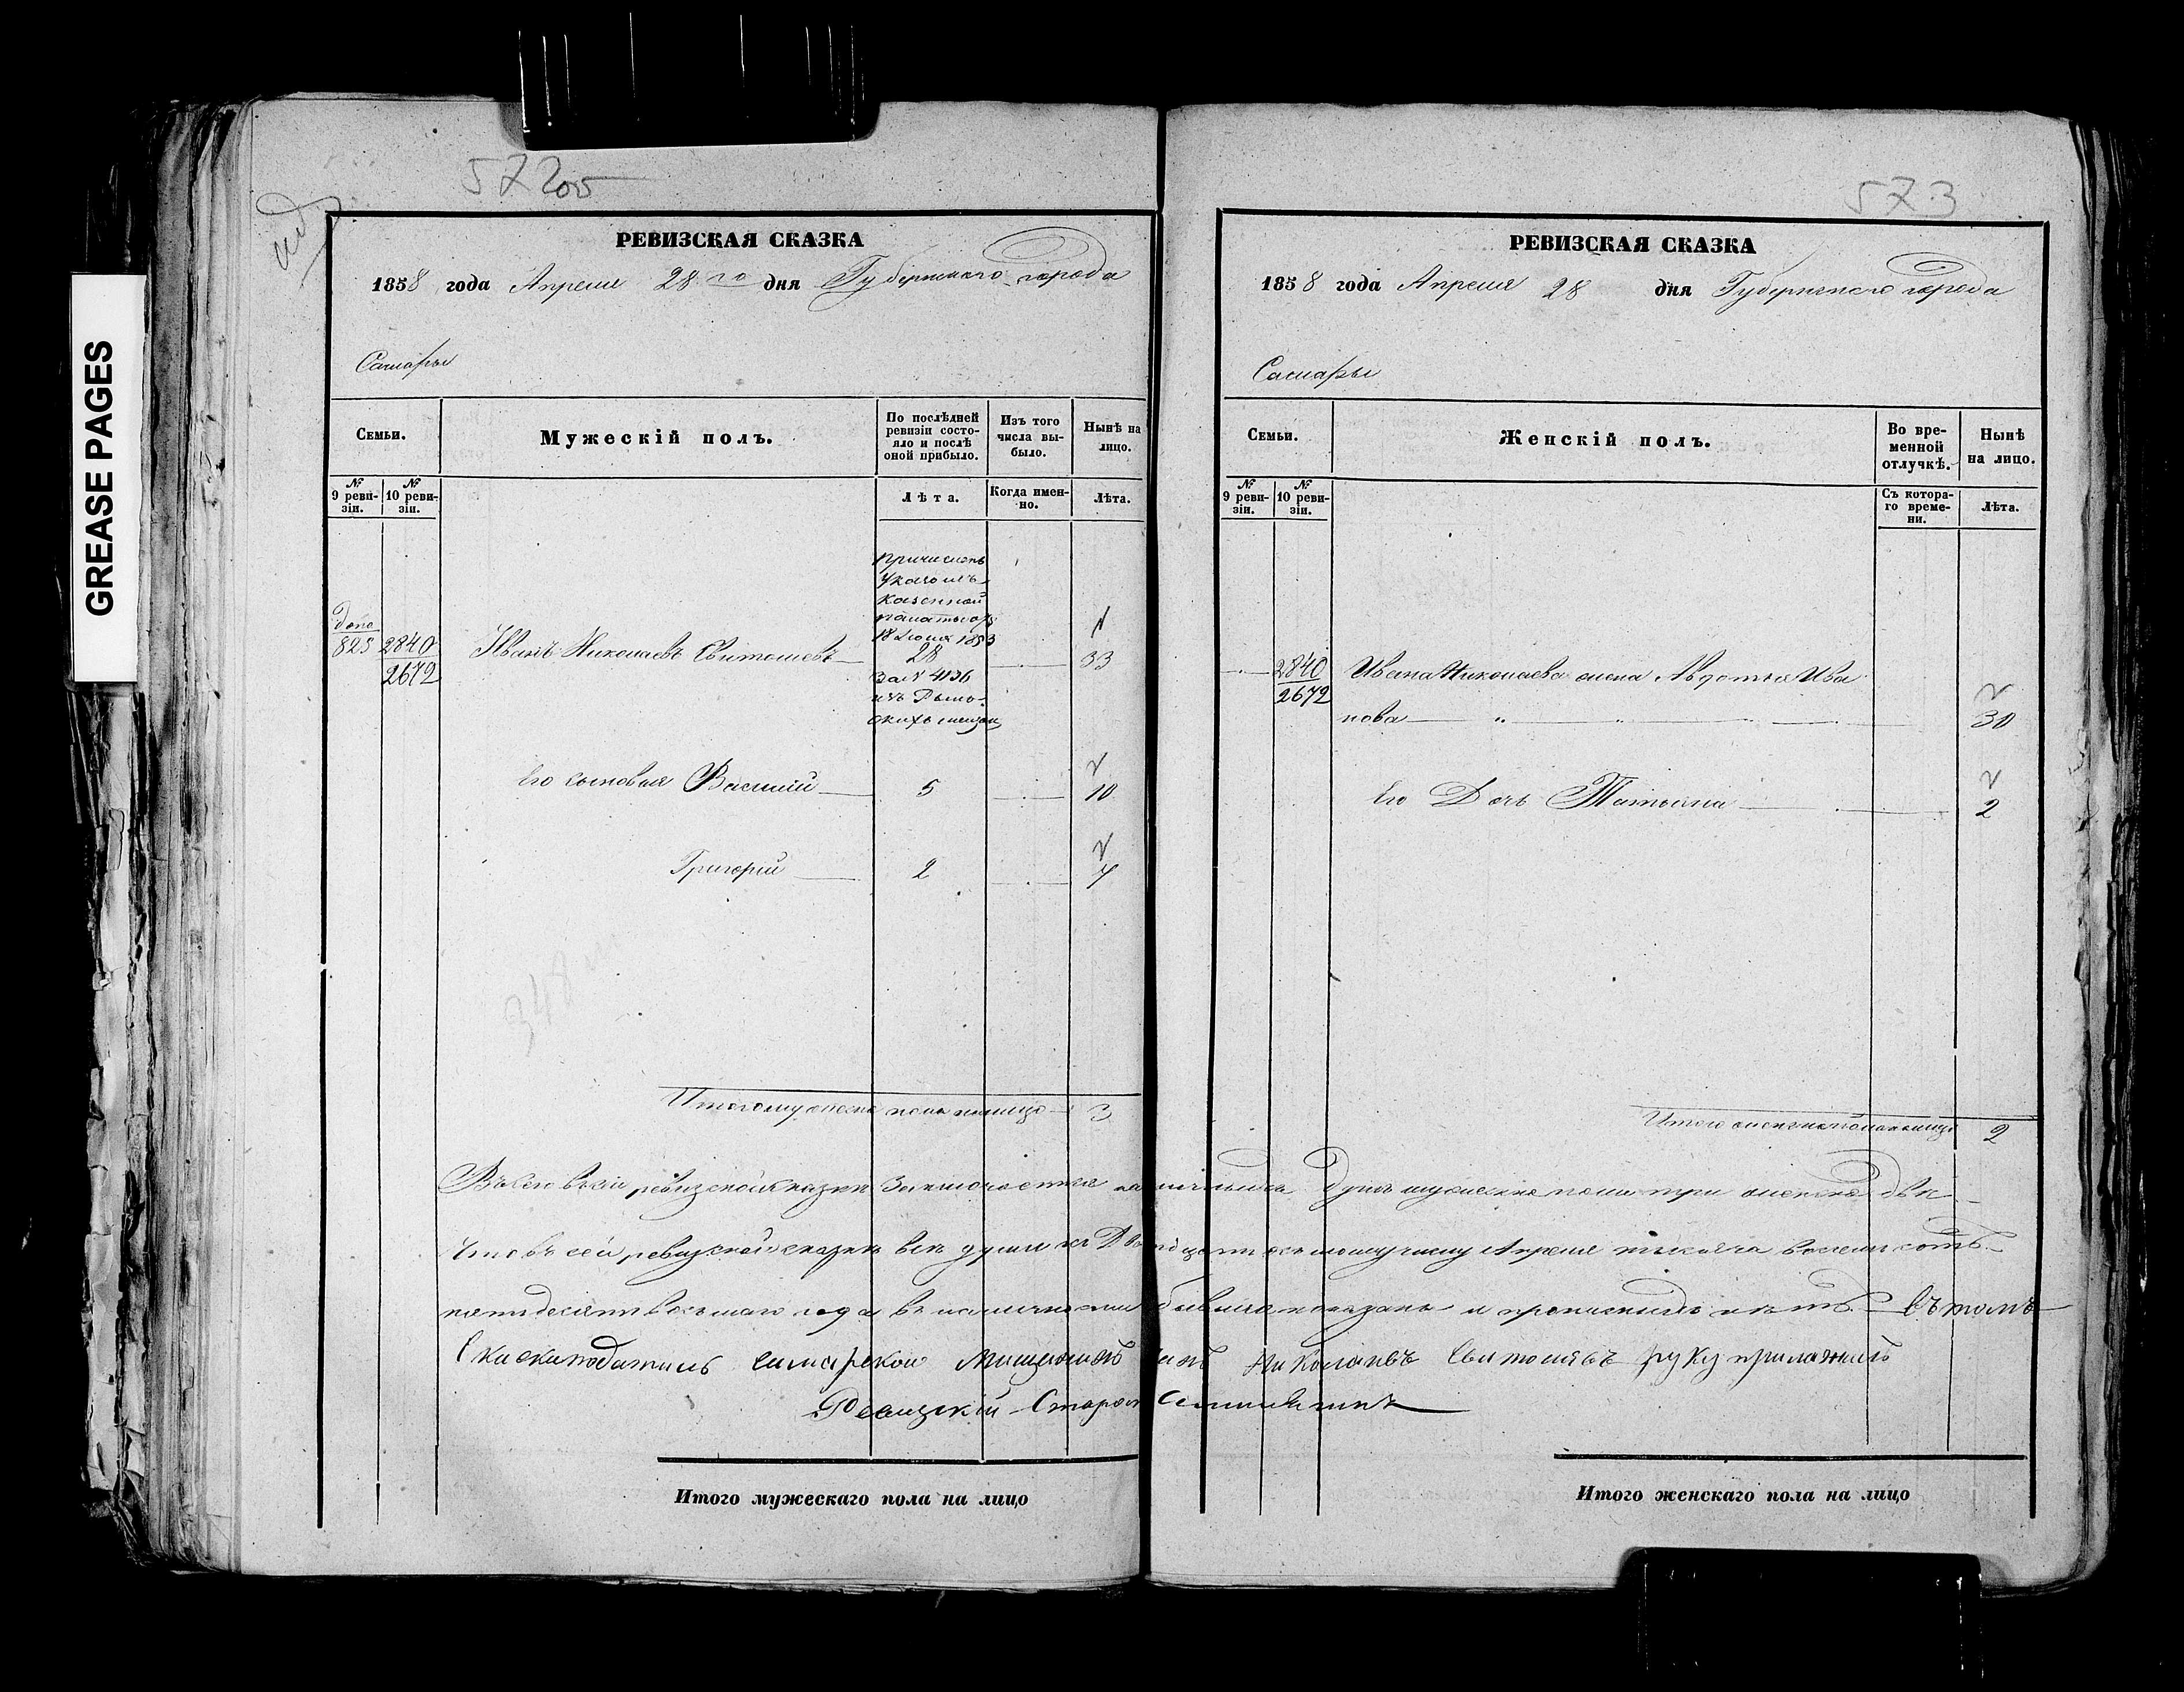 GREASE PAGES
572 об
РЕВИЗСКАЯ СКАЗКА
1858 года Апреля 28 го дня Губернскаго города
Самары
Семьи.
Мужескій полъ.
По послѣдней ревизіи состояло и послѣ оной прибыло.
Изъ того числа выбыло.
Нынѣ на лицо.
№ 9 ревизіи.
№ 10 ревизіи.
Лѣта.
Когда именно.
Лѣта.
причисленъ
указомъ
казенной
палаты отъ
18 Июня 1853
допо
825 2840 Иванъ Николаевъ Свитошевъ 28 33
2672 за № 4136
изъ
скихъ мещан
Его сыновья Василий 5 10
Григорий 2 7
Итого мужеска пола налицо 3
573
РЕВИЗСКАЯ СКАЗКА
1858 года Апреля 28 дня Губернскаго города
Самары
Семьи.
Женскій полъ.
Во временной отлучкѣ.
Нынѣ на лицо.
№ 9 ревизіи.
№ 10 ревизіи.
Съ котораго времени.
Лѣта.
2840 Ивана Николаева жена Авдотья Ива
2672 нова 30
Его Дочь Татьяна 2
Итого женска пола налицо 2
Всего в сей ревизской сказке заключается наличныхъ душъ мужеска пола три женска две
Что въ сей ревизской сказке все души къ Двадцать осьмому числу Апреля тысяча восемь сотъ
пятидесяти восьмаго года въ наличности бывшие показаны и прописныхъ нетъ Въ томъ
Скаскоподатиль самарской мищанинъ Иванъ Николаивъ Свитошивъ руку приложилъ
Ревизскій Староста
Итого мужескаго пола на лицо
Итого женскаго пола на лицо